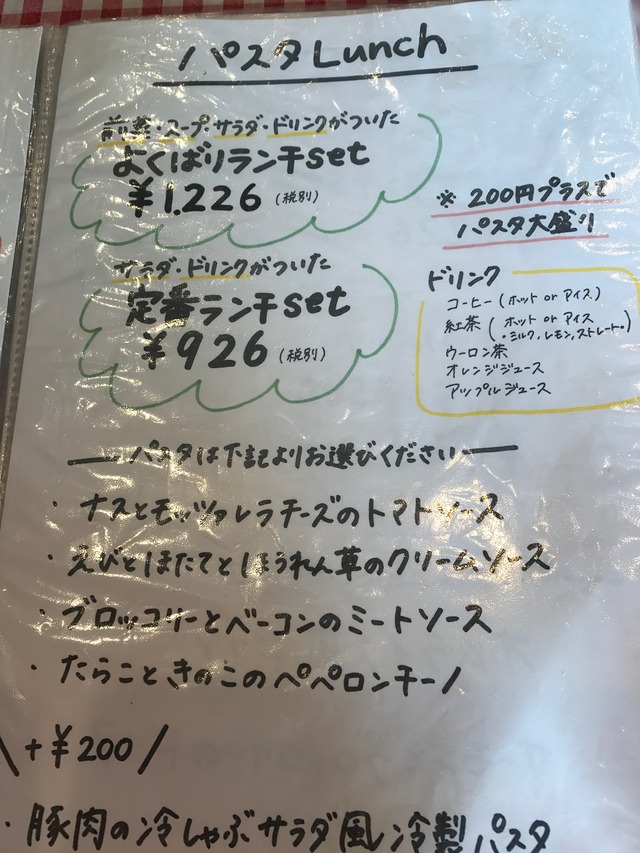 パスタLunch
前菜・スープ・サラダ・ドリンクがついた
よくばりランチset
¥1,226 (税別)
※ 200円プラスで
パスタ大盛り
サラダ・ドリンクがついた
定番ランチset
¥926 (税別)
ドリンク
コーヒー (ホット or アイス)
紅茶 (ホット or アイス
・ミルク, レモン, ストレート。)
ウーロン茶
オレンジジュース
アップルジュース
パスタは下記よりお選びください
・ナスとモッツァレラチーズのトマトソース
・えびとほたてとほうれん草のクリームソース
・ブロッコリーとベーコンのミートソース
・たらこときのこのペペロンチーノ
\ +¥200 /
・豚肉の冷しゃぶサラダ風冷製パスタ